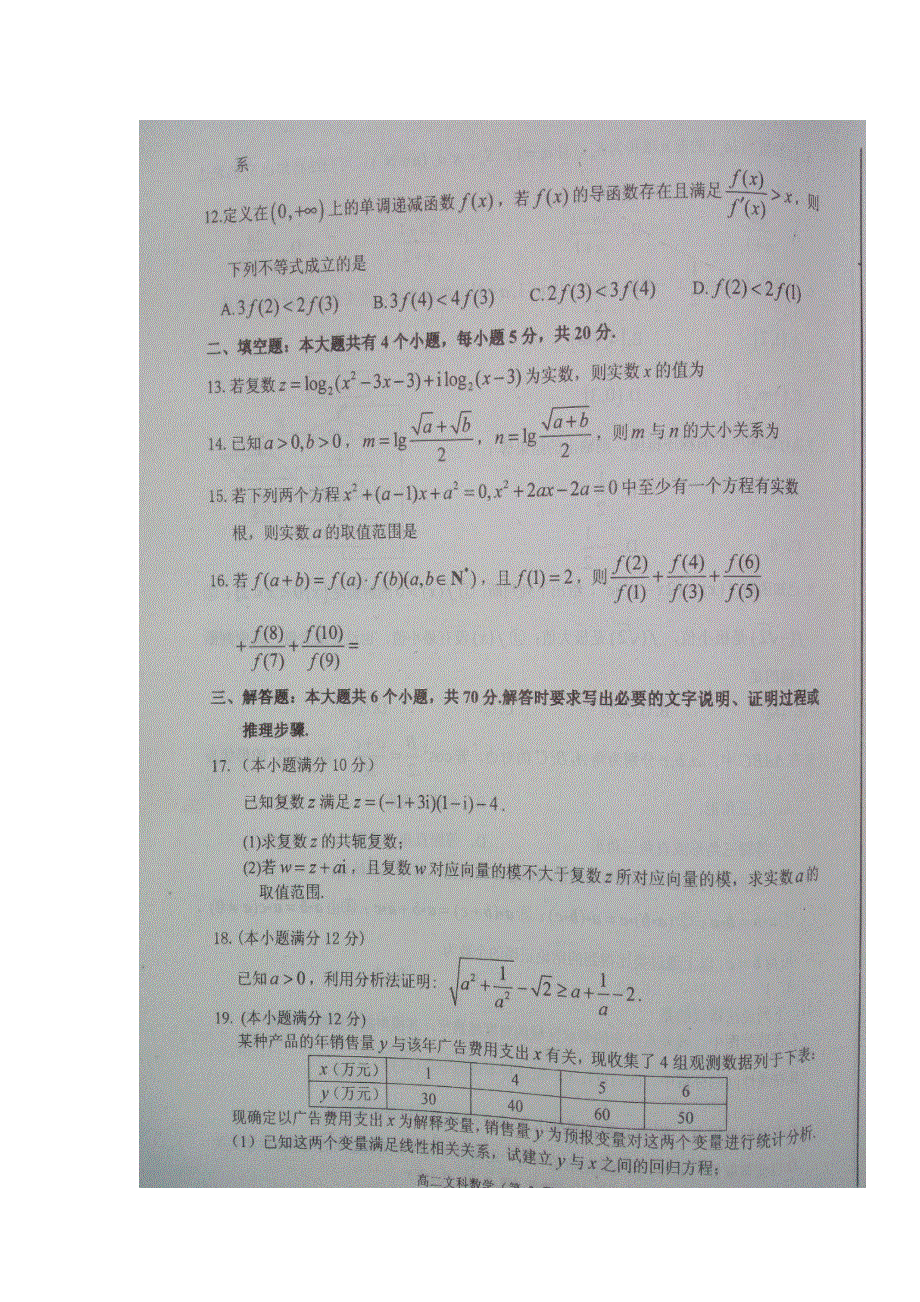 系
12.定义在(0,+∞)上的单调递减函数f(x)，若f(x)的导函数存在且满足f(x)/f′(x)>x，则
下列不等式成立的是
A.3f(2)<2f(3) B.3f(4)<4f(3) C.2f(3)<3f(4) D.f(2)<2f(1)
二、填空题：本大题共有4个小题，每小题5分，共20分.
13.若复数z=log₂(x²-3x-3)+ilog₂(x-3)为实数，则实数x的值为
14.已知a>0,b>0，m=lg (√a+√b)/2，n=lg √(a+b)/2，则m与n的大小关系为
15.若下列两个方程x²+(a-1)x+a²=0,x²+2ax-2a=0中至少有一个方程有实数
根，则实数a的取值范围是
16.若f(a+b)=f(a)·f(b)(a,b∈N*)，且f(1)=2，则f(2)/f(1)+f(4)/f(3)+f(6)/f(5)
+f(8)/f(7)+f(10)/f(9)=
三、解答题：本大题共6个小题，共70分.解答时要求写出必要的文字说明、证明过程或
推理步骤.
17.（本小题满分10分）
已知复数z满足z=(-1+3i)(1-i)-4.
(1)求复数z的共轭复数；
(2)若w=z+ai，且复数w对应向量的模不大于复数z所对应向量的模，求实数a的
取值范围.
18.(本小题满分12分)
已知a>0，利用分析法证明：√(a²+1/a²)-√2≥a+1/a-2.
19.(本小题满分12分)
某种产品的年销售量y与该年广告费用支出x有关，现收集了4组观测数据列于下表：
x（万元） 1 4 5 6
y（万元） 30 40 60 50
现确定以广告费用支出x为解释变量，销售量y为预报变量对这两个变量进行统计分析.
（1）已知这两个变量满足线性相关关系，试建立y与x之间的回归方程；
高二文科数学